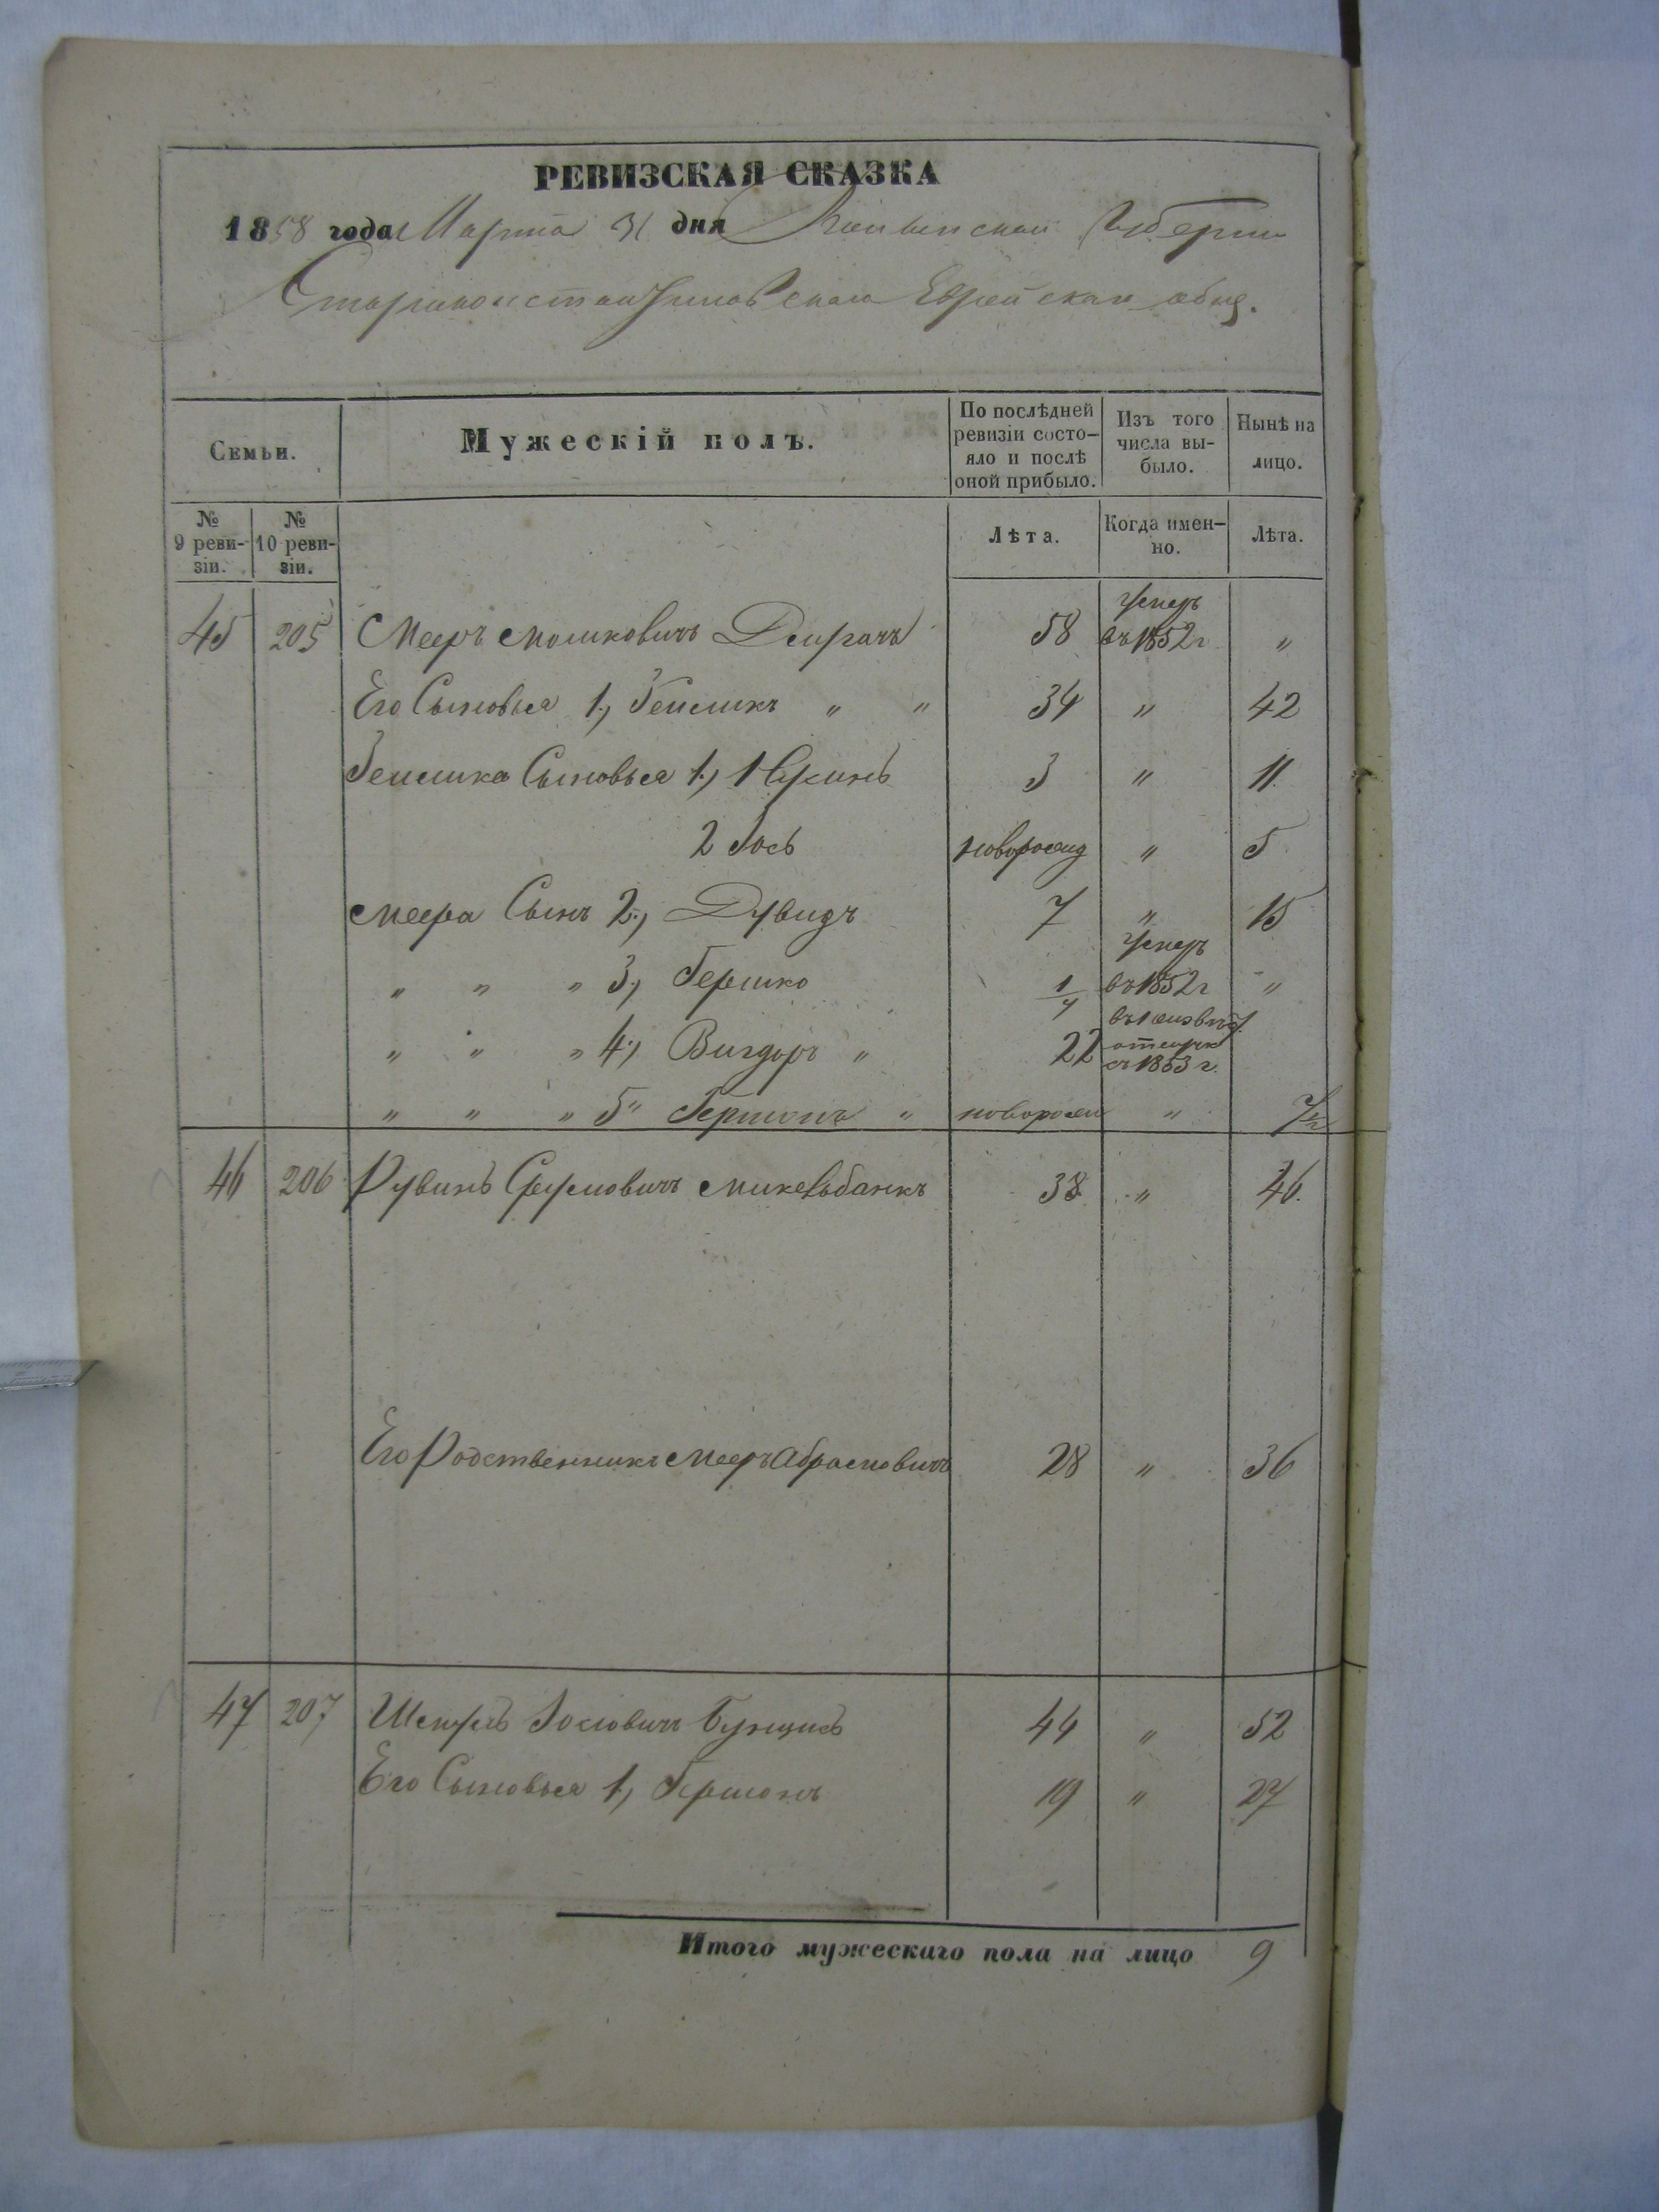 РЕВИЗСКАЯ СКАЗКА
1858 года Марта 31 дня Волынской Губернии
Староконстантиновскаго Еврейскаго общ.
Семьи.
Мужескій полъ.
По послѣдней ревизіи состо-
яло и послѣ
оной прибыло.
Изъ того
числа вы-
было.
Нынѣ на
лицо.
№
9 реви-
зіи.
№
10 реви-
зіи.
Лѣта.
Когда имен-
но.
Лѣта.
45 205 Мееръ Мошковичъ 58 умеръ въ 1852 г "
Его Сыновья 1., " " 34 " 42
Сыновья 1., 3 " 11
2 Іось новорожд " 5
Меера Сынъ 2., Дувидъ 7 " 15
" " " 3., Гершко 1/4 умеръ въ 1852 г "
" " " 4., Вигдоръ " 22 въ 1853 г.
" " " 5 " Гершонъ " новорожд "
46 206 Рувинъ Сруловичъ 38 " 46.
Его Родственникъ Мееръ Абрамовичъ 28 " 36
47 207 Іосіовичъ 44 " 52
Его Сыновья 1., Гершонъ 19 " 27
Итого мужескаго пола на лицо 9